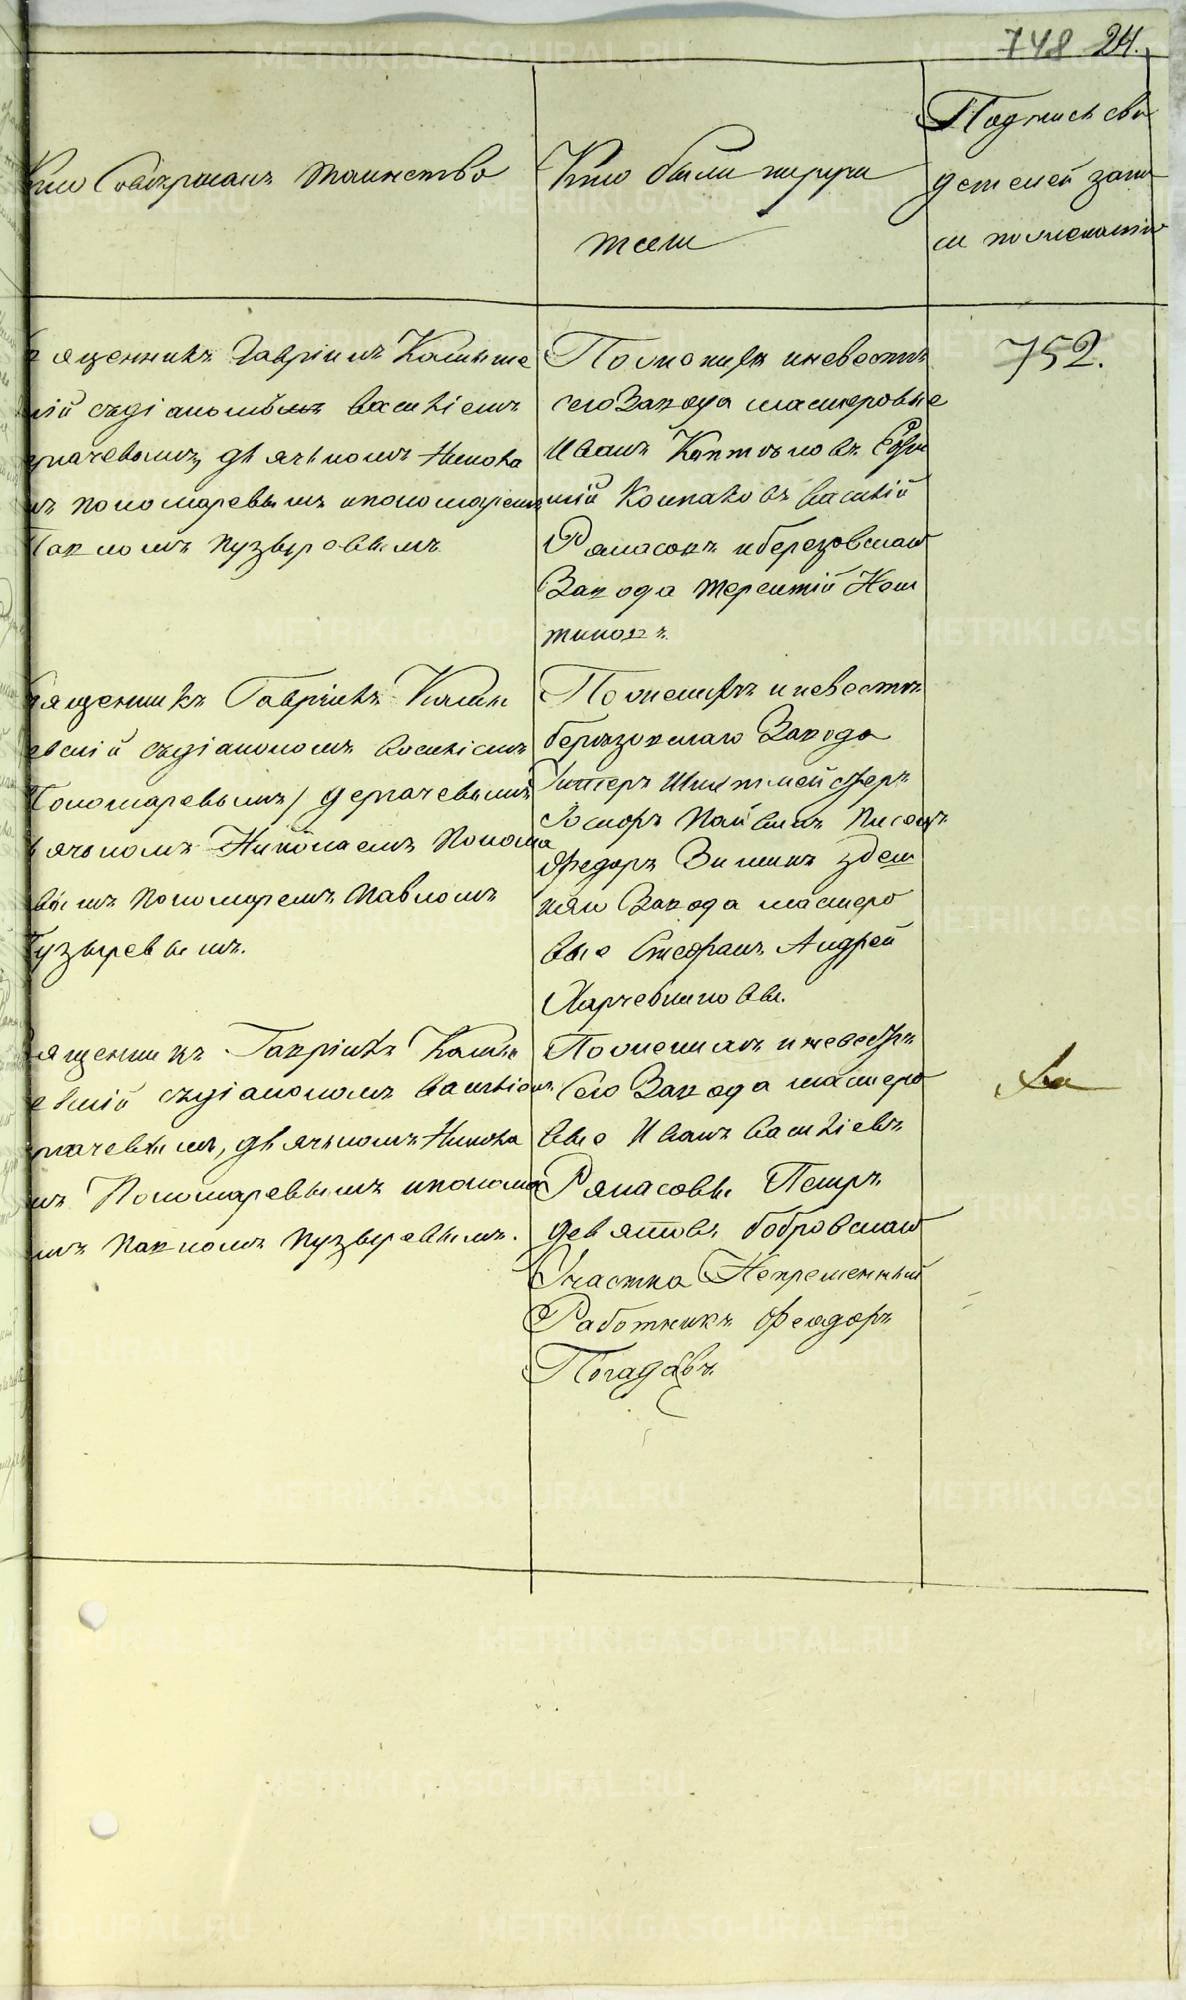 748 24.
Кто Совершалъ таинство
Кто были поручи
тели
Подпись сви
детелей запи
си по желанію
вященникъ Гавріилъ Камыше
кій съ діакономъ Василіемъ
ргачевымъ, дьячькомъ Никола
мъ пономаревымъ и пономаремъ
Павломъ пузыревымъ
По женихѣ и невестѣ
сего Завода мастеровые
Иванъ Коптѣловъ Евфи
мій Колпаковъ Василій
Рямасовъ и березовскаго
Завода терентій
752.
вященникъ Гавріилъ Камы
евскій съ діакономъ Василіемъ
Пономаревымъ) дергачевымъ
ьячькомъ Николаемъ Понома
вымъ Пономаремъ Павломъ
Пузыревымъ.
По женихѣ и невестѣ
березовскаго Завода
Унтеръ Шихтмейстеръ
Писецъ
Федоръ Зиминъ здеш
няго Завода мастеро
вые Стефанъ Андрей
Харчевниковы.
вященникъ Гавріилъ Камы
евскій съ діакономъ Василіем
ргачевымъ, дьячькомъ Никола
мъ Пономаревымъ и понома
мъ Павломъ Пузыревымъ.
По женихѣ и невестѣ
Сего Завода мастеро
вые Иванъ Василіевъ
Рямасовы Петръ
девятовъ бобровскаго
Участка Непременный
Работникъ Феодоръ
Погадаевъ.
METRIKI.GASO-URAL.RU